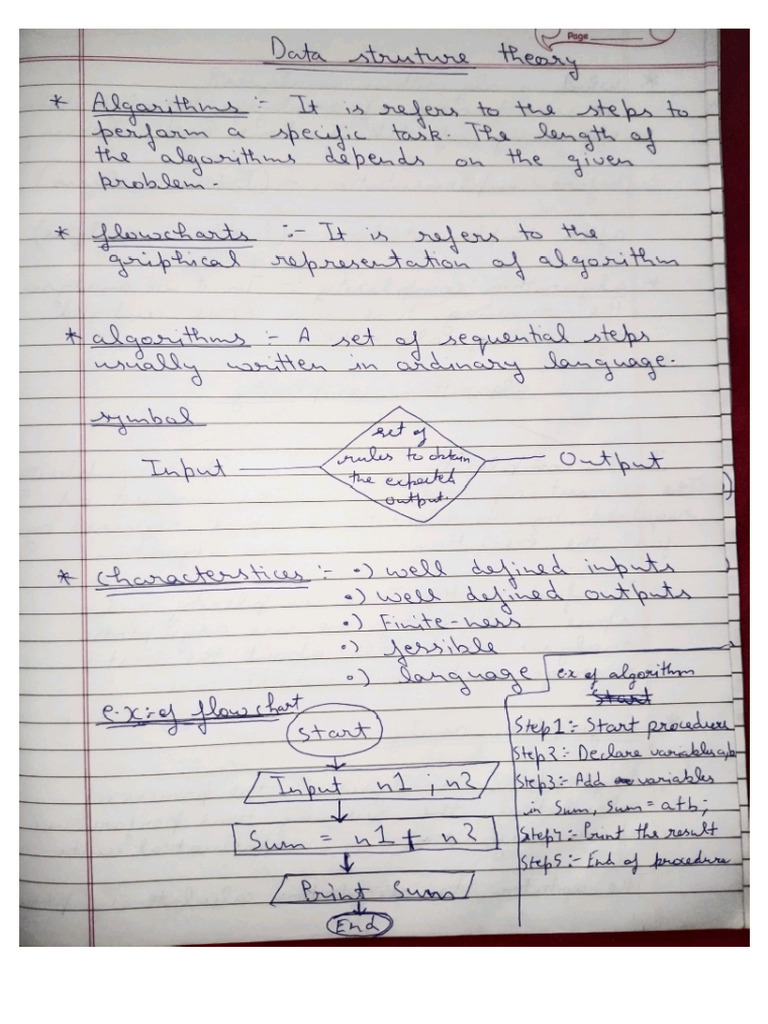 Page
Data struture theory
* Algorithms :- It is refers to the steps to
perform a specific task. The length of
the algorithms depends on the given
problem.
* flowcharts :- It is refers to the
griphical representation of algorithm
* algorithms :- A set of sequential steps
usually written in ordinary language.
symbol
set of
rules to obtain
the expected
output.
Input
Output
* Characterstices :- •) well defined inputs
•) well defined outputs
•) Finite-ness
•) fessible
•) language
e.x:- of flowchart
Start
Input n1 ; n2
Sum = n1 + n2
Print Sum
End
ex of algorithm
Start
Step1:- Start procedure
Step2:- Declare variables a,b
Step3:- Add variables
in Sum, Sum = a+b;
Step4:- Print the result
Step5:- End of procedure